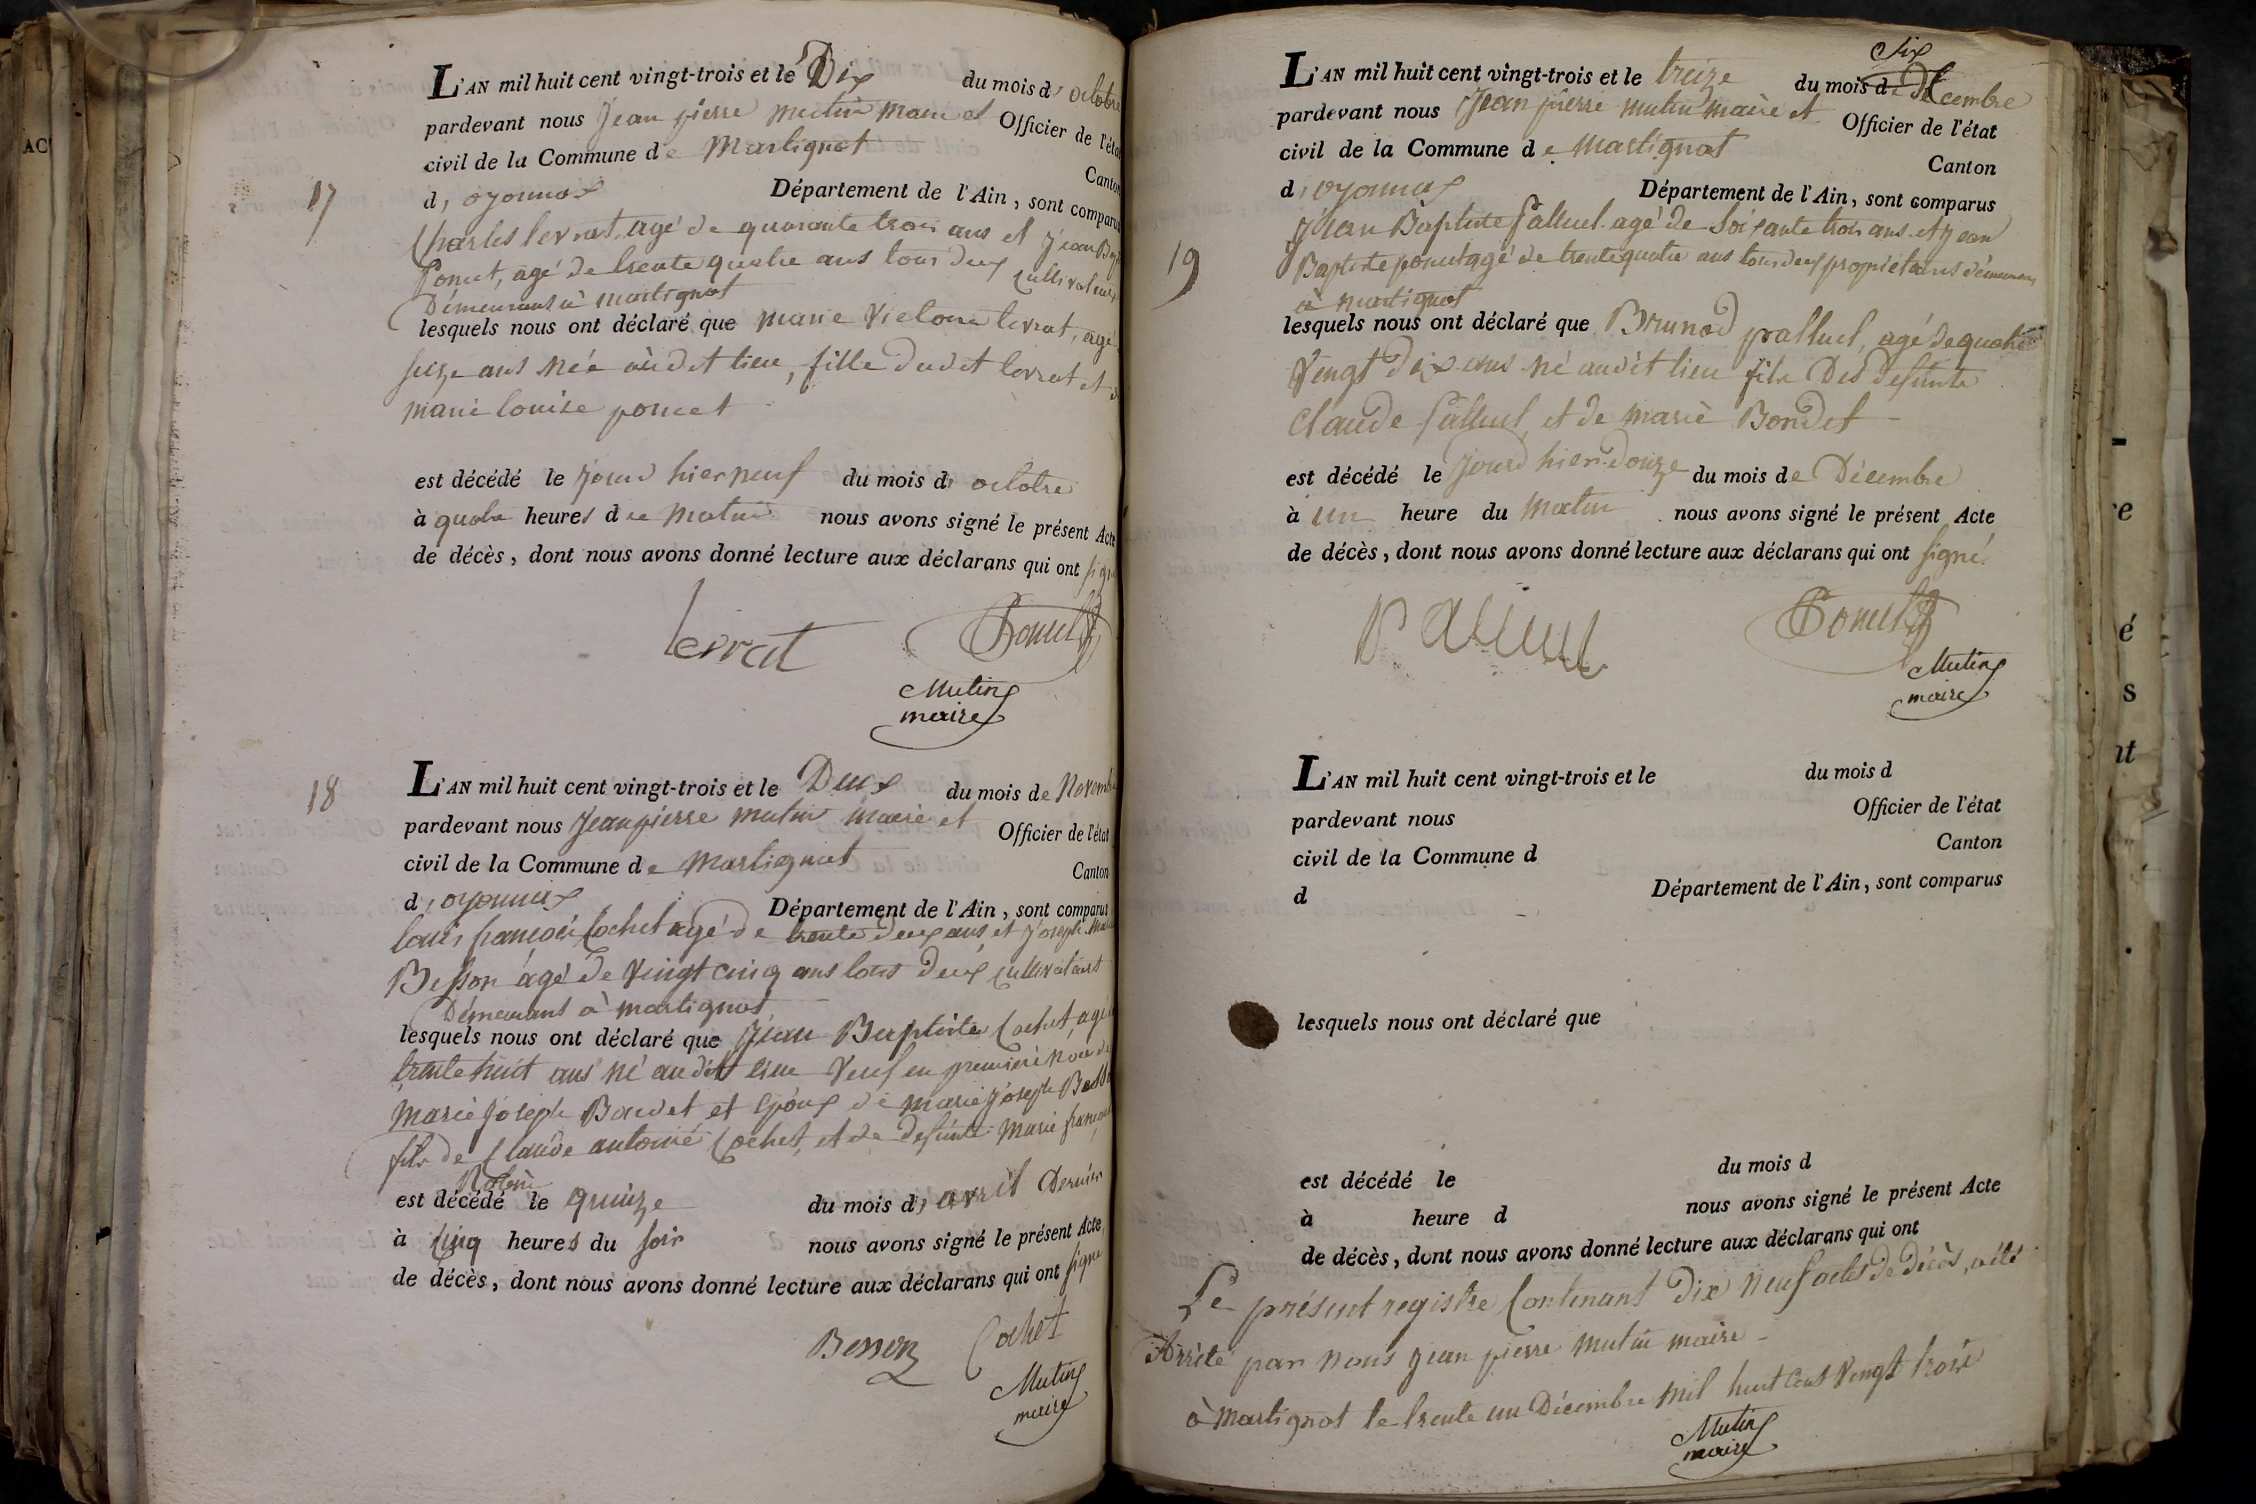 17
L'AN mil huit cent vingt-trois et le Dix du mois d'octobre
pardevant nous Jean pierre mutin maire et Officier de l'état
civil de la Commune de Martignat Canton
d'oyonnax Département de l'Ain, sont comparus
Charles levrat, agé de quarante trois ans et Jean Bap
Poncet, agé de trente quatre ans tous deux cultivateurs
Demeurans à martignat
lesquels nous ont déclaré que marie Victoire levrat, agé
seize ans née audit lieu, fille dudit levrat et
marie louise poncet
est décédé le jour d'hier neuf du mois d'octobre
à quatre heures du matin nous avons signé le présent Acte
de décès, dont nous avons donné lecture aux déclarans qui ont signé
levrat Poncet
Mutin
maire
18
L'AN mil huit cent vingt-trois et le Deux du mois de Novemb
pardevant nous Jean pierre mutin maire et Officier de l'état
civil de la Commune de Martignat Canton
d'oyonnax Département de l'Ain, sont comparus
louis françois Cochet agé de trente deux ans, et joseph
Besson agé de Vingt cinq ans tous deux cultivateurs
Demeurans à martignat
lesquels nous ont déclaré que Jean Baptiste Cochet, agé
trente huit ans né audit lieu Veuf en premiere noce de
Marie joseph Baudet et Epoux de marie joseph
fils de Claude antoine Cochet, et de defunte Marie françoise
est décédé le quinze du mois d'avril Dernier
à Cinq heures du soir nous avons signé le présent Acte
de décès, dont nous avons donné lecture aux déclarans qui ont signé
Besson Cochet
Mutin
maire
19
six
L'AN mil huit cent vingt-trois et le treize du mois de Décembre
pardevant nous Jean pierre mutin maire et Officier de l'état
civil de la Commune de Martignat Canton
d'oyonnax Département de l'Ain, sont comparus
Jean Baptiste Palluel agé de soixante trois ans et Jean
Baptiste poncet agé de trente quatre ans tous deux proprietaires démeurans
à martignat
lesquels nous ont déclaré que Brunod palluel, agé de quatre
Vingt dix ans né audit lieu fils Des defunts
Claude Palluel, et de marie Bondet
est décédé le jour d'hier douze du mois de Décembre
à un heure du matin nous avons signé le présent Acte
de décès, dont nous avons donné lecture aux déclarans qui ont signé.
Palluel Poncet
Mutin
maire
L'AN mil huit cent vingt-trois et le du mois d
pardevant nous Officier de l'état
civil de la Commune d Canton
d Département de l'Ain, sont comparus
lesquels nous ont déclaré que
est décédé le du mois d
à heure d nous avons signé le présent Acte
de décès, dont nous avons donné lecture aux déclarans qui ont
Le présent registre Contenant Dix neuf actes de décès, a été
Arrêté par nous Jean pierre mutin maire
à Martignat le trente un Décembre mil huit Cent Vingt trois
Mutin
maire